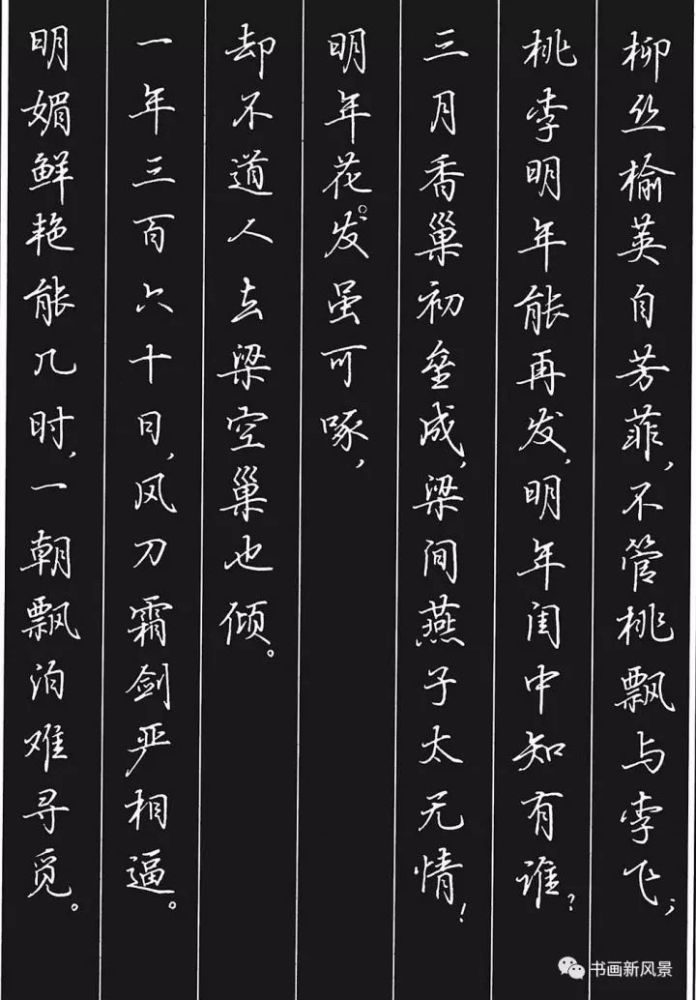 柳丝榆荚自芳菲,不管桃飘与李飞;
桃李明年能再发,明年闺中知有谁?
三月香巢初垒成,梁间燕子太无情!
明年花。发虽可啄,
却不道人去梁空巢也倾。
一年三百六十日,风刀霜剑严相逼。
明媚鲜艳能几时,一朝飘泊难寻觅。
书画新风景